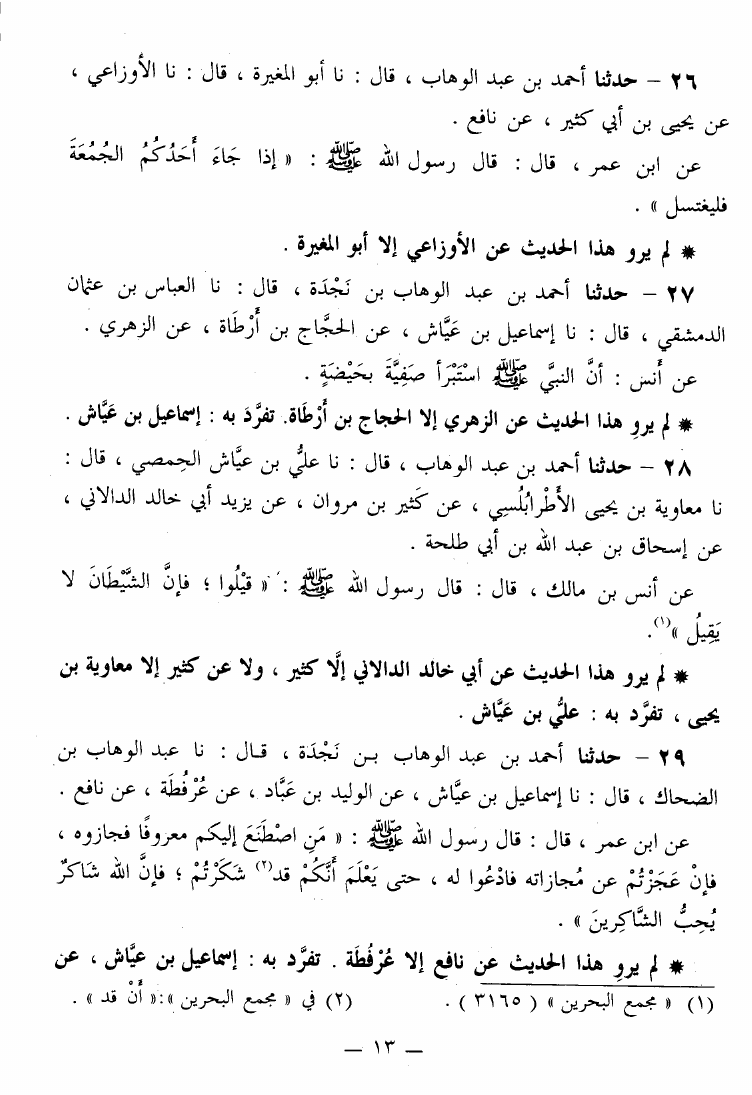 ٢٦ – حدثنا أحمد بن عبد الوهاب ، قال : نا أبو المغيرة ، قال : نا الأوزاعي ،
عن يحيى بن أبي كثير ، عن نافع .
عن ابن عمر ، قال : قال رسول الله ﷺ : « إذا جَاءَ أَحَدُكُمُ الجُمُعَةَ
فليغتسل » .
* لم يرو هذا الحديث عن الأوزاعي إلا أبو المغيرة .
٢٧ – حدثنا أحمد بن عبد الوهاب بن نَجْدَة ، قال : نا العباس بن عثمان
الدمشقي ، قال : نا إسماعيل بن عَيَّاش ، عن الحجَّاج بن أَرْطَاة ، عن الزهري .
عن أَنس : أنَّ النبيَّ ﷺ اسْتَبْرَأ صَفِيَّةَ بحَيْضَةٍ .
* لم يروِ هذا الحديث عن الزهري إلا الحجاج بن أَرْطَاة. تفرَّدَ به : إسماعيل بن عَيَّاش .
٢٨ – حدثنا أحمد بن عبد الوهاب ، قال : نا عليُّ بن عيَّاش الحِمصي ، قال :
نا معاوية بن يحيى الأَطْرابُلُسِي ، عن كَثير بن مروان ، عن يزيد أبي خالد الدالاني ،
عن إسحاق بن عبد الله بن أبي طلحة .
عن أنس بن مالك ، قال : قال رسول الله ﷺ : « قِيْلُوا ؛ فإنَّ الشَّيْطَانَ لا
يَقِيلُ »(١).
* لم يرو هذا الحديث عن أبي خالد الدالاني إلَّا كثير ، ولا عن كثير إلا معاوية بن
يحيى ، تفرَّد به : عليُّ بن عيَّاش .
٢٩ – حدثنا أحمد بن عبد الوهاب بـن نَجْدَة ، قـال : نا عبد الوهاب بن
الضحاك ، قال : نا إسماعيل بن عيَّاش ، عن الوليد بن عَبَّاد ، عن عُرْفُطَة ، عن نافع .
عن ابن عمر ، قال : قال رسول الله ﷺ : « مَنِ اصْطَنَعَ إليكم معروفًا فجازوه ،
فإنْ عَجَزْتُمْ عن مُجازاته فادْعُوا له ، حتى يَعْلَمَ أَنَّكُمْ قد(٢) شَكَرْتُمْ ؛ فإنَّ الله شَاكرٌ
يُحِبُّ الشَّاكِرِينَ » .
* لم يروِ هذا الحديث عن نافع إلا عُرْفُطَة . تفرَّد به : إسماعيل بن عيَّاش ، عن
(١) « مجمع البحرين » ( ٣١٦٥ ) . (٢) في « مجمع البحرين »:« أَنْ قد » .
– ١٣ –